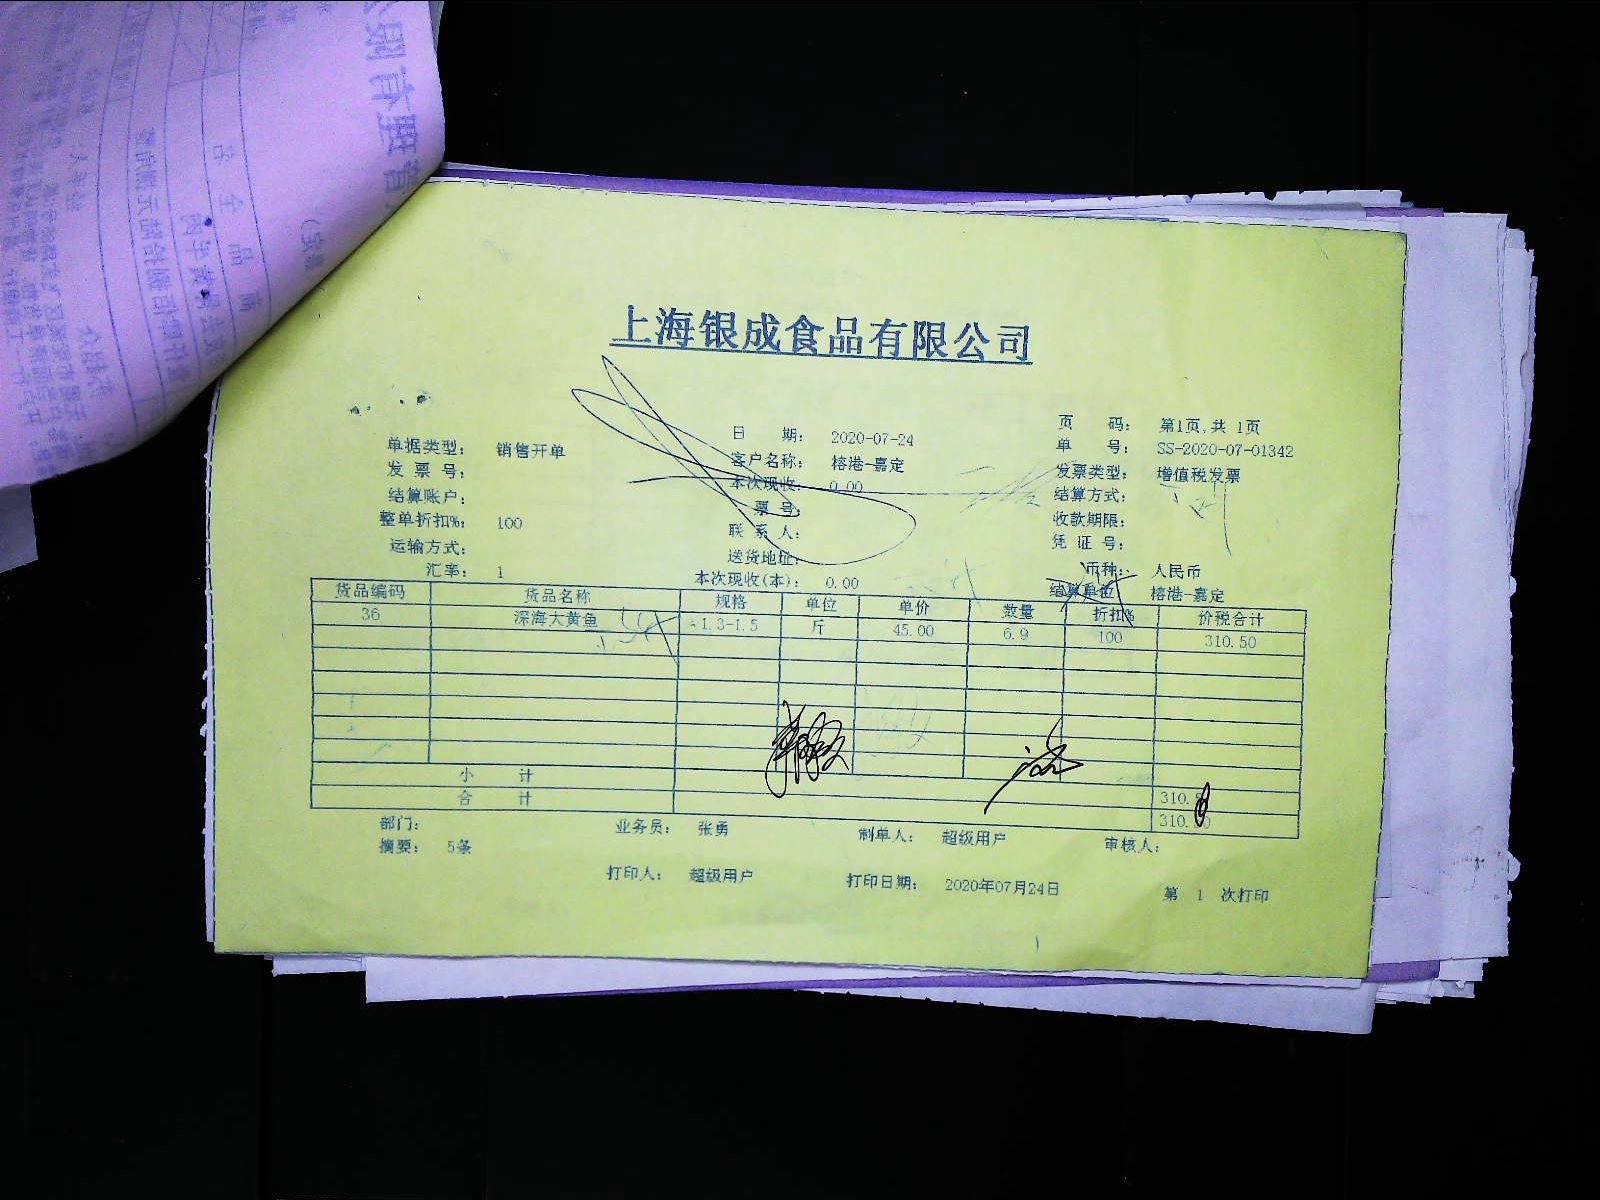 上海银成食品有限公司
页 码： 第1页,共 1页
日 期： 2020-07-24
单 号： SS-2020-07-01342
单据类型： 销售开单
客户名称： 榕港-嘉定
发票类型： 增值税发票
发 票 号：
本次现收： 0.00
结算方式：
结算账户：
票 号：
收款期限：
整单折扣%： 100
联 系 人：
凭 证 号：
运输方式：
送货地址：
币种： 人民币
汇率： 1
本次现收(本)： 0.00
结算单位 榕港-嘉定
货品编码 货品名称 规格 单位 单价 数量 折扣% 价税合计
36 深海大黄鱼 1.3-1.5 斤 45.00 6.9 100 310.50
小 计 310.
合 计 310.
部门： 业务员： 张勇 制单人： 超级用户 审核人：
摘要： 5条
打印人： 超级用户 打印日期： 2020年07月24日 第 1 次打印